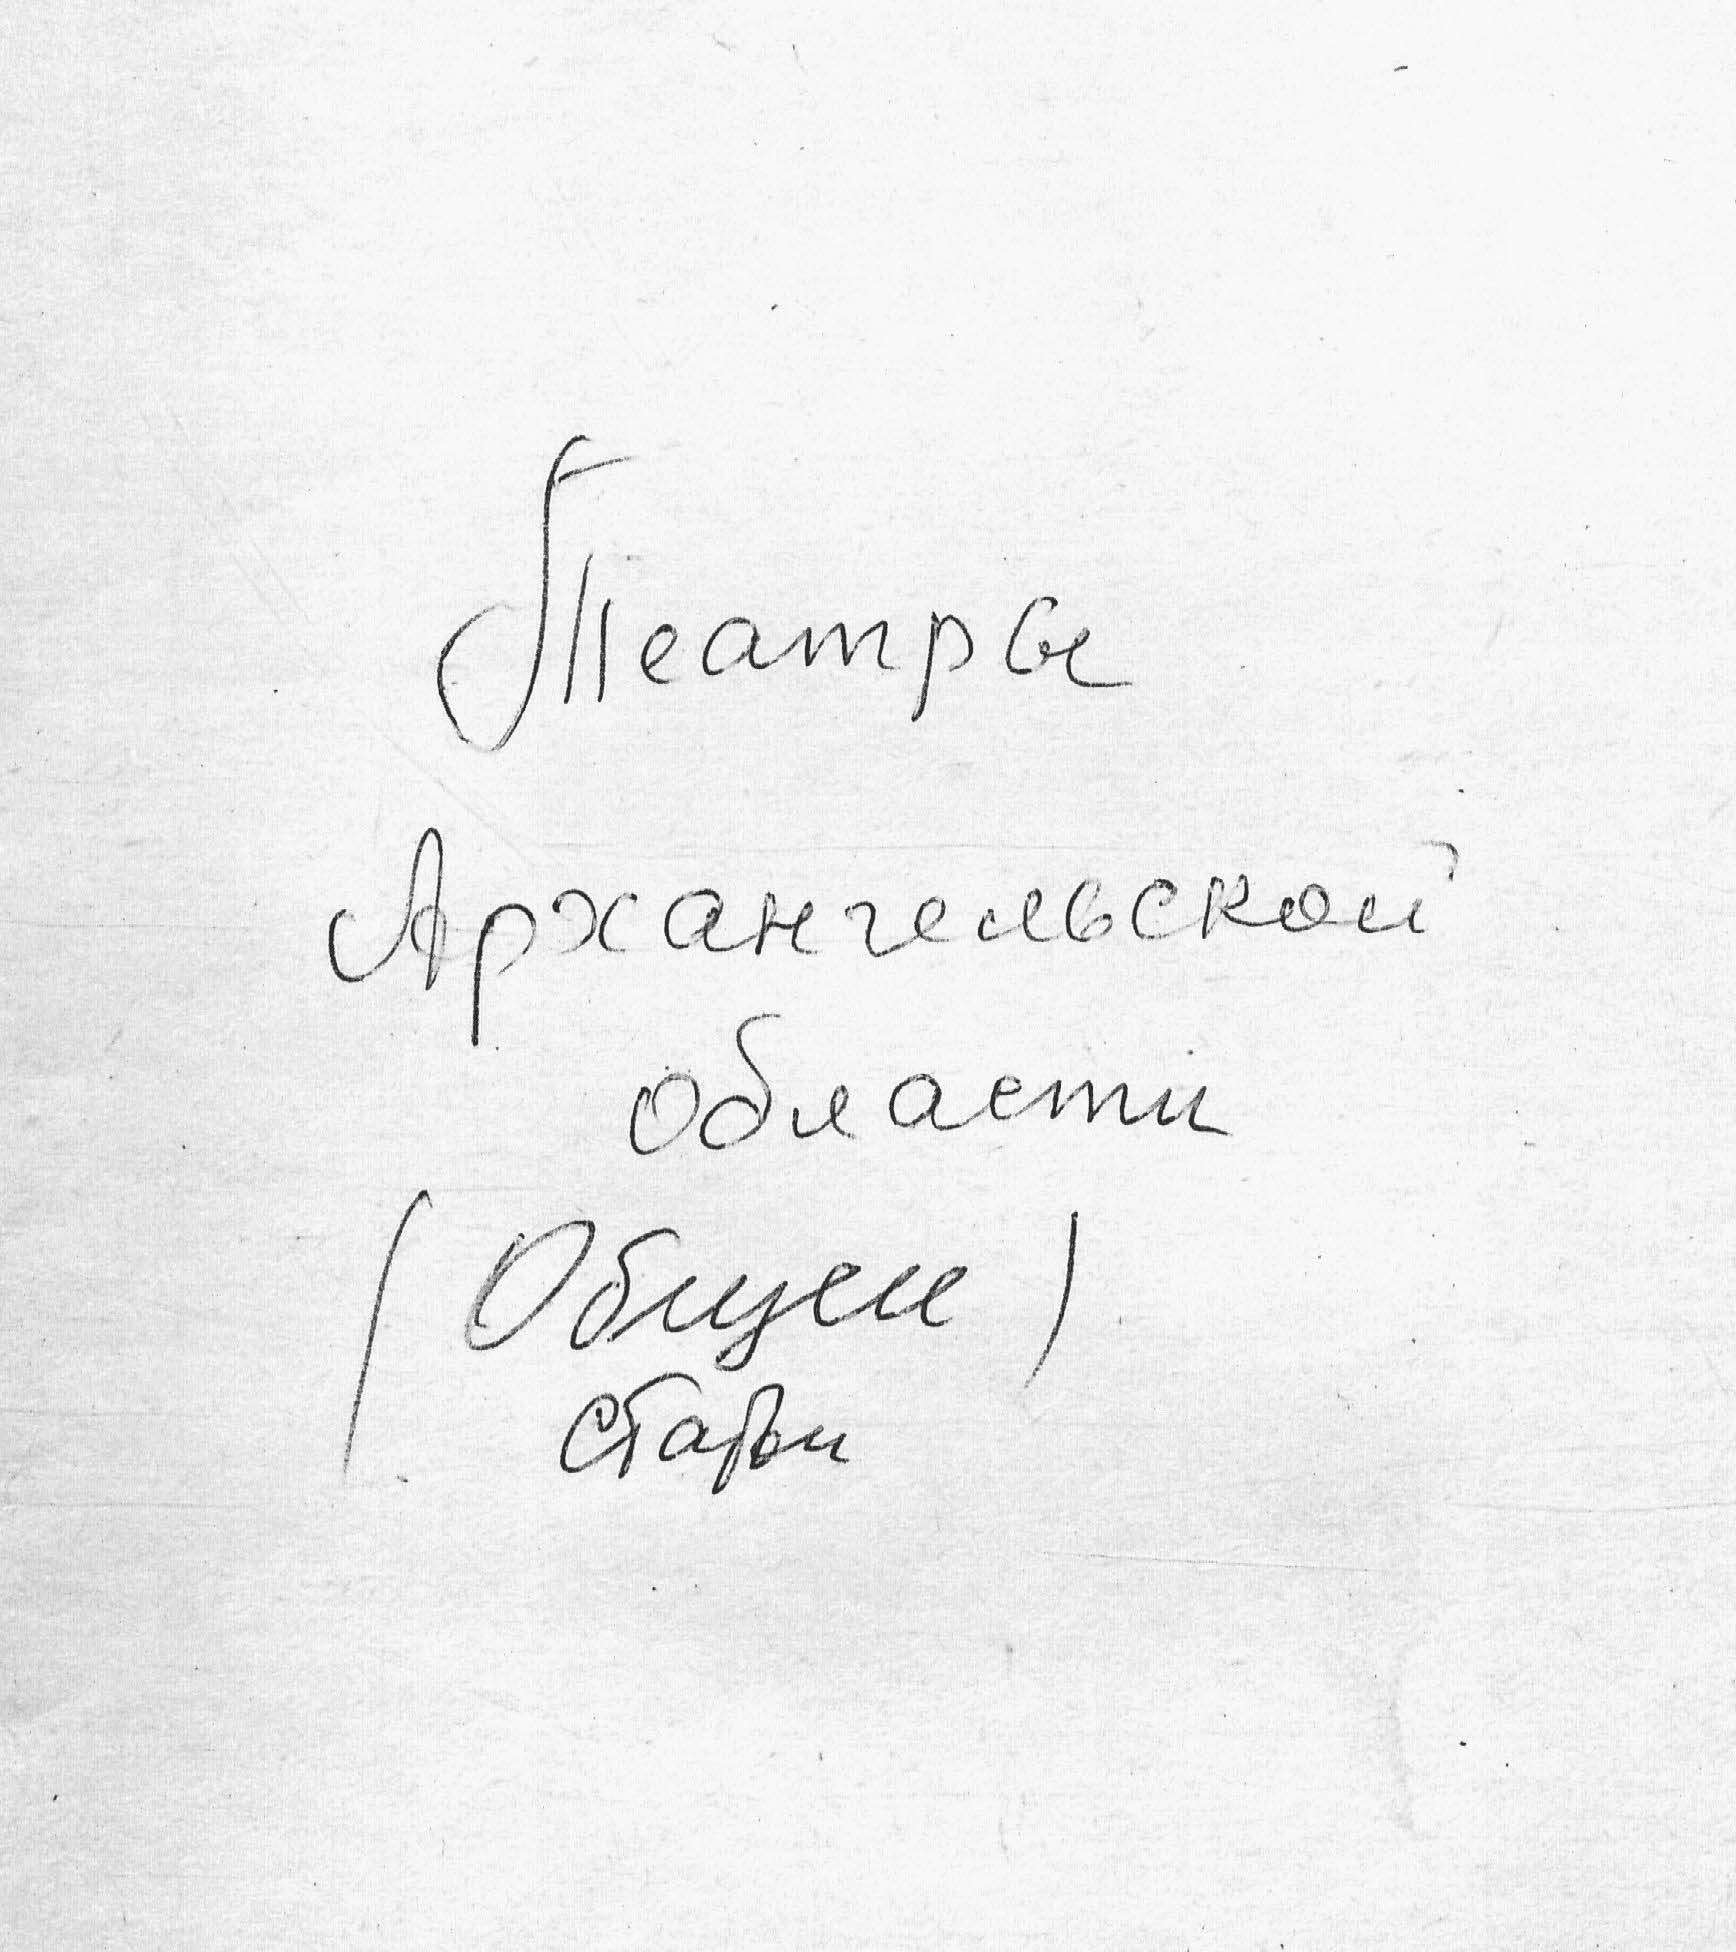 Театры
Архангельской
области
(Общие)
статьи